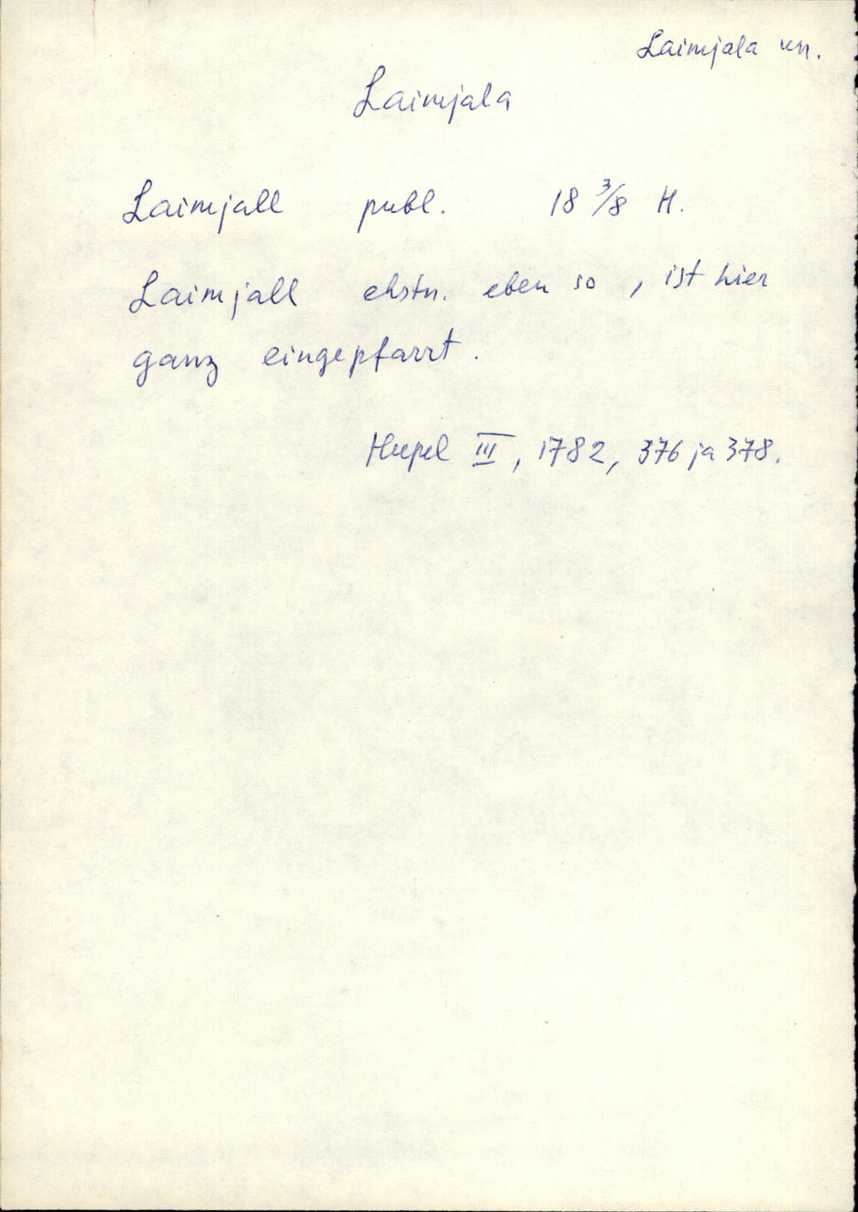 Laimjala kn.
Laimjala
Laimjall publ. 18 3/8 H.
Laimjall ehstn. eben so, ist hier
ganz eingepfarrt.
Hupel III, 1782, 376 ja 378.